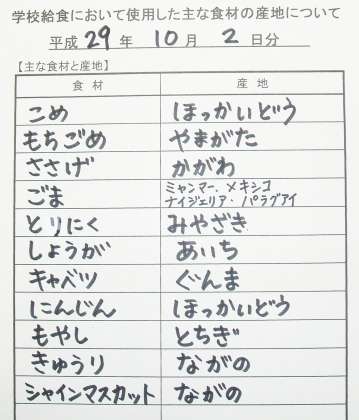 学校給食において使用した主な食材の産地について
平成 29 年 10 月 2 日分
【主な食材と産地】
食材 産地
こめ ほっかいどう
もちごめ やまがた
ささげ かがわ
ごま ミャンマー、メキシコ
ナイジェリア・パラグアイ
とりにく みやざき
しょうが あいち
キャベツ ぐんま
にんじん ほっかいどう
もやし とちぎ
きゅうり ながの
シャインマスカット ながの